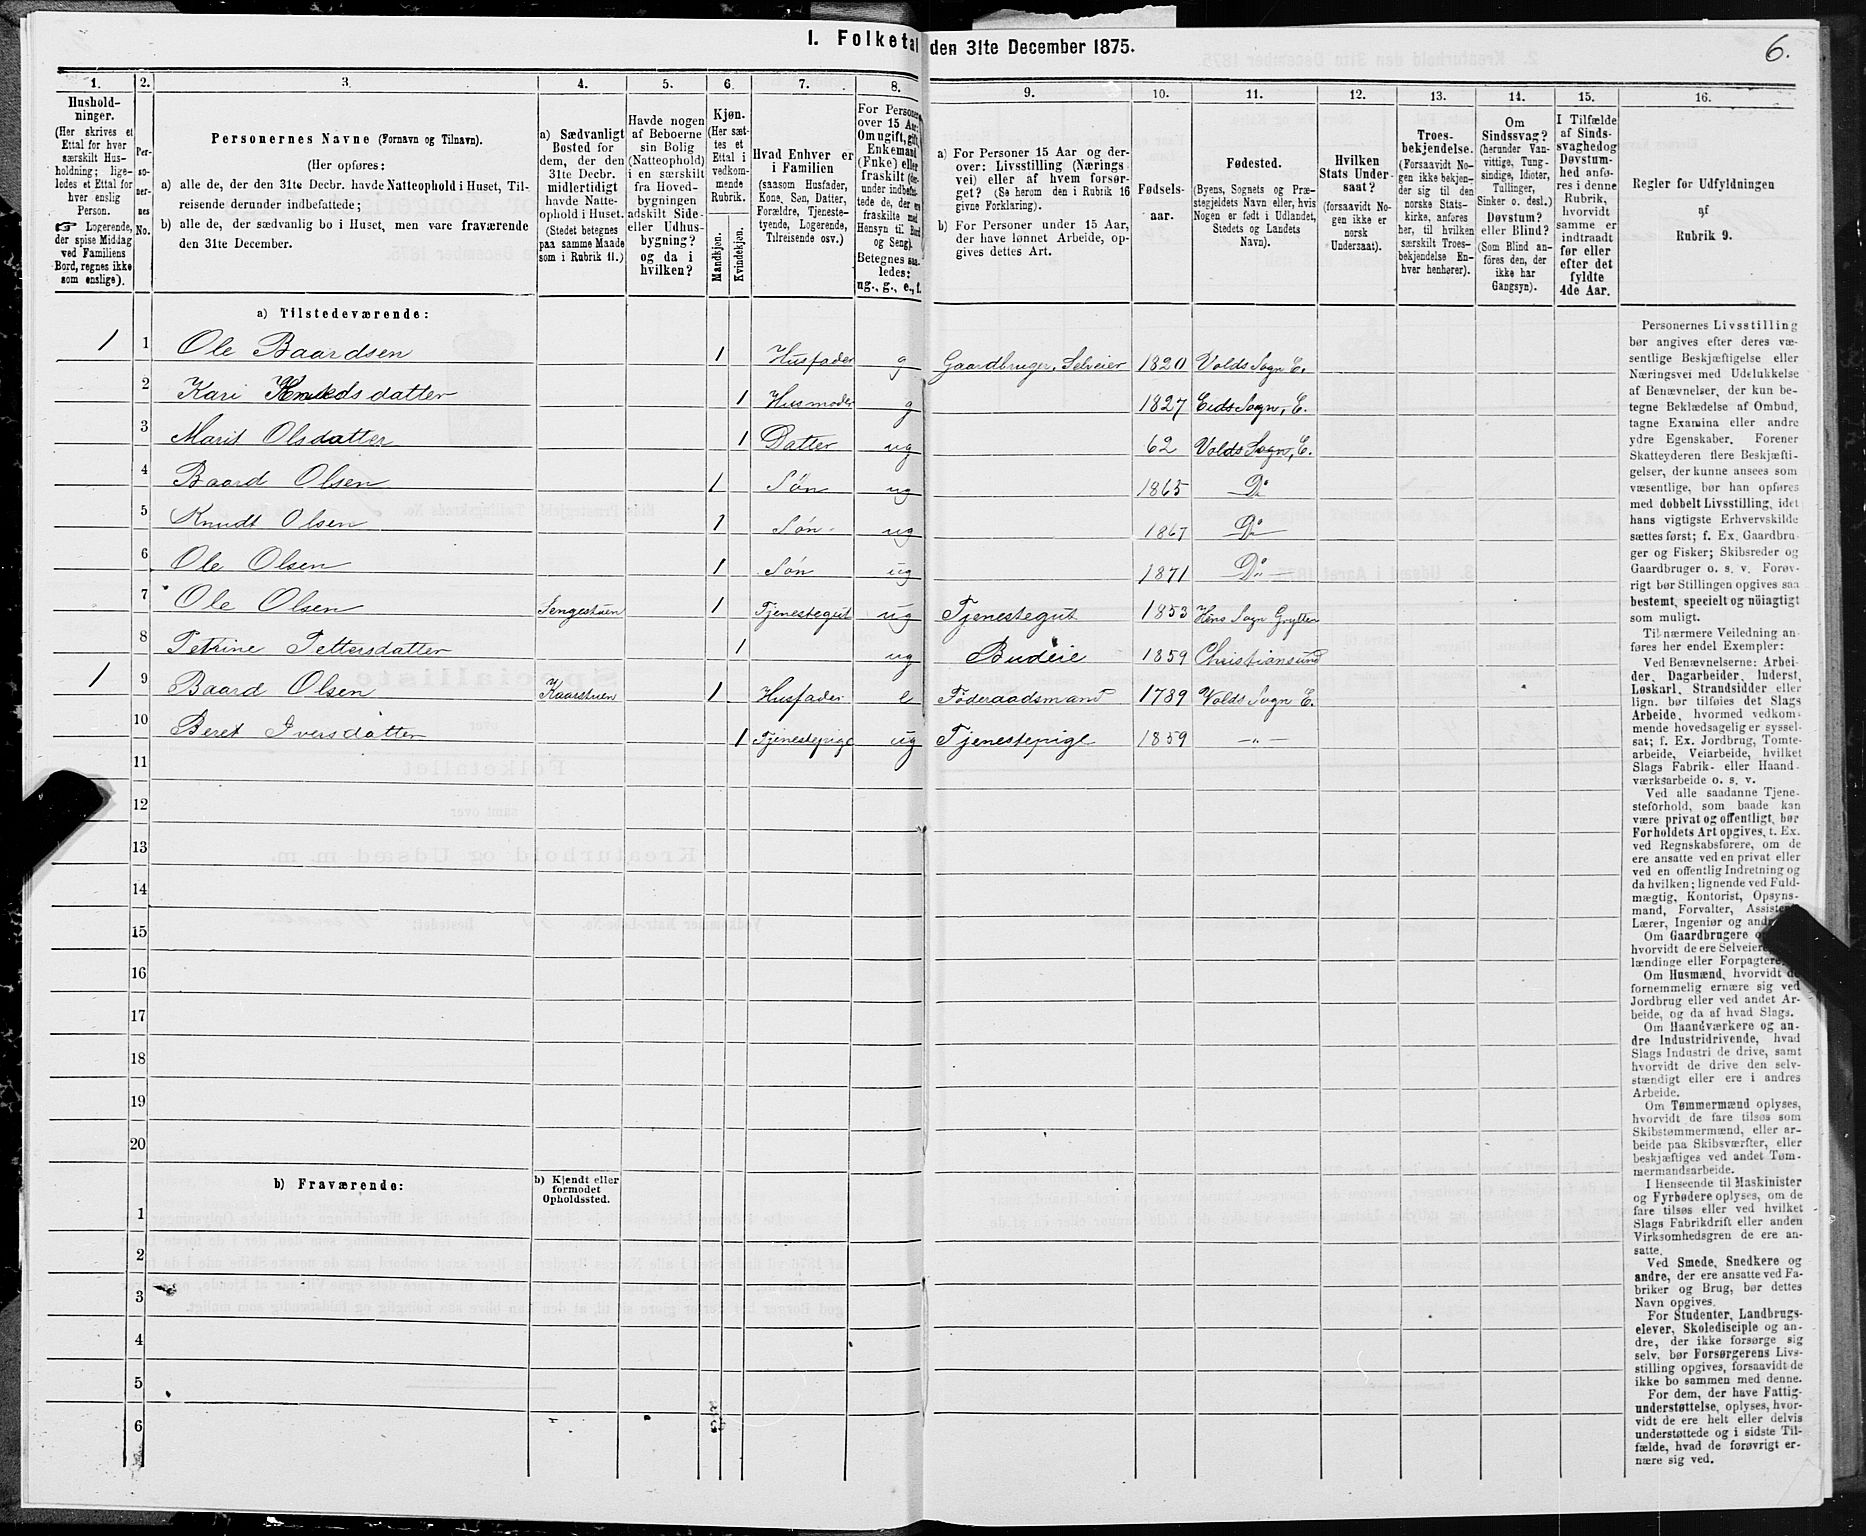 I. Folketal den 31te December 1875.
6.
1. 2. 3. 4. 5. 6. 7. 8. 9. 10. 11. 12. 13. 14. 15. 16.
Hushold-
ninger.
(Her skrives et
Ettal for hver
særskilt Hus-
holdning; lige-
ledes et Ettal for
hver enslig
Person.
☞ Logerende,
der spise Middag
ved Familiens
Bord, regnes ikke
som enslige).
Per-
so-
ner-
nes
No.
Personernes Navne (Fornavn og Tilnavn).
(Her opføres:
a) alle de, der den 31te Decbr. havde Natteophold i Huset, Til-
reisende derunder indbefattede;
b) alle de, der sædvanlig bo i Huset, men vare fraværende
den 31te December.
a) Sædvanligt
Bosted for
dem, der den
31te Decbr.
midlertidigt
havde Natte-
ophold i Huset.
(Stedet betegnes
paa samme Maade
som i Rubrik 11.)
Havde nogen
af Beboerne
sin Bolig
(Natteophold)
i en særskilt
fra Hoved-
bygningen
adskilt Side-
eller Udhus-
bygning?
og da i
hvilken?
Kjøn.
(Her sæt-
tes et
Ettal i
vedkom-
mende
Rubrik.
Mandkjøn.
Kvindekjøn.
Hvad Enhver er
i Familien
(saasom Husfader,
Kone, Søn, Datter,
Forældre, Tjeneste-
tyende, Logerende,
Tilreisende osv.)
For Personer
over 15 Aar:
Om ugift, gift,
Enkemand
(Enke) eller
fraskilt (der-
under indbefat-
tede de, der ere
fraskilte med
Hensyn til Bord
og Seng).
Betegnes saa-
ledes:
ug., g., e., f.
a) For Personer 15 Aar og der-
over: Livsstilling (Nærings-
vei) eller af hvem forsør-
get? (Se herom den i Rubrik 16
givne Forklaring).
b) For Personer under 15 Aar,
der have lønnet Arbeide, op-
gives dettes Art.
Fødsels-
aar.
Fødested.
(Byens, Sognets og Præ-
stegjeldets Navn eller, hvis
Nogen er født i Udlandet,
Stedets og Landets
Navn).
Hvilken
Stats Under-
saat?
(forsaavidt No-
gen ikke er
norsk
Undersaat).
Troes-
bekjendelse.
(Forsaavidt No-
gen ikke bekjen-
der sig til den
norske Stats-
kirke, anføres
her, til hvilken
særskilt Troes-
bekjendelse En-
hver henhører).
Om
Sindssvag?
(herunder Van-
vittige, Tung-
sindige, Idioter,
Tullinger,
Sinker o. desl.)
Døvstum?
eller Blind?
(Som Blind an-
føres den, der
ikke har
Gangsyn).
I Tilfælde
af Sinds-
svaghed og
Døvstum-
hed anfø-
res i denne
Rubrik,
hvorvidt
samme er
indtraadt
før eller
efter det
fyldte
4de Aar.
Regler for Udfyldningen
af
Rubrik 9.
a) Tilstedeværende:
1 1 Ole Baardsen 1 Husfader g Gaardbruger, Selveier 1820 Volds Sogn E.
2 Kari Knudsdatter 1 Husmoder g 1827 Eids Sogn, E.
3 Marit Olsdatter 1 Datter ug 62 Volds Sogn, E.
4 Baard Olsen 1 Søn ug 1865 Do
5 Knudt Olsen 1 Søn ug 1867 Do
6 Ole Olsen 1 Søn ug 1871 Do
7 Ole Olsen Sengestuen 1 Tjenestegut ug Tjenestegut 1853 Hens Sogn Grytten
8 Petrine Pettersdatter 1 ug Budeie 1859 Christiansund
1 9 Baard Olsen Kaarstuen 1 Husfader e Føderaadsmand 1789 Volds Sogn E.
10 Beret Iversdatter 1 Tjenestepige ug Tjenestepige 1859 -"-
11
12
13
14
15
16
17
18
19
20
b) Fraværende:
b) Kjendt eller
formodet
Opholdssted.
1
2
3
4
5
6
Personernes Livsstilling
bør angives efter deres væ-
sentlige Beskjæftigelse eller
Næringsvei med Udelukkelse
af Benævnelser, der kun be-
tegne Beklædelse af Ombud,
tagne Examina eller andre
ydre Egenskaber. Forener
Skatteyderen flere Beskjæfti-
gelser, der kunne ansees som
væsentlige, bør han opføres
med dobbelt Livsstilling, idet
hans vigtigste Erhvervskilde
sættes først; f. Ex. Gaardbru-
ger og Fisker; Skibsreder og
Gaardbruger o. s. v. Forøv-
rigt bør Stillingen opgives saa
bestemt, specielt og nöiagtigt
som muligt.
Til nærmere Veiledning an-
føres her endel Exempler:
Ved Benævnelserne: Arbei-
der, Dagarbeider, Inderst,
Løskarl, Strandsidder eller
lign. bør tilføies det Slags
Arbeide, hvormed vedkom-
mende hovedsagelig er syssel-
sat; f. Ex. Jordbrug, Tomte-
arbeide, Veiarbeide, hvilket
Slags Fabrik- eller Haand-
værksarbeide o. s. v.
Ved alle saadanne Tjene-
steforhold, som baade kan
være privat og offentligt, bør
Forholdets Art opgives, t. Ex.
ved Regnskabsførere, om de
ere ansatte ved en privat eller
ved en offentlig Indretning og
da hvilken; lignende ved Fuld-
mægtig, Kontorist, Opsyns-
mand, Forvalter, Assistent,
Lærer, Ingeniør og andre.
Om Gaardbrugere
hvorvidt de ere Selveiere,
lændinge eller Forpagtere.
Om Husmænd, hvorvidt de
fornemmelig ernære sig ved
Jordbrug eller ved andet Ar-
beide, og da af hvad Slags.
Om Haandværkere og an-
dre Industridrivende, hvad
Slags Industri de drive, samt
hvorvidt de drive den selv-
stændigt eller ere i andres
Arbeide.
Om Tømmermænd oplyses,
hvorvidt de fare tilsøs som
Skibstømmermænd, eller ar-
beide paa Skibsværfter, eller
beskjæftiges ved andet Tøm-
mermandsarbeide.
I Henseende til Maskinister
og Fyrbødere oplyses, om de
fare tilsøs eller ved hvilket
Slags Fabrikdrift eller anden
Virksomhedsgren de ere an-
satte.
Ved Smede, Snedkere og
andre, der ere ansatte ved Fa-
briker og Brug, bør dettes
Navn opgives.
For Studenter, Landbrugs-
elever, Skoledisciple og an-
dre, der ikke forsørge sig
selv, bør Forsørgerens Livs-
stilling opgives, forsaavidt de
ikke bo sammen med denne.
For dem, der have Fattig-
understøttelse, oplyses, hvor-
vidt de ere helt eller delvis
understøttede og i sidste Til-
fælde, hvad de forøvrigt er-
nære sig ved.